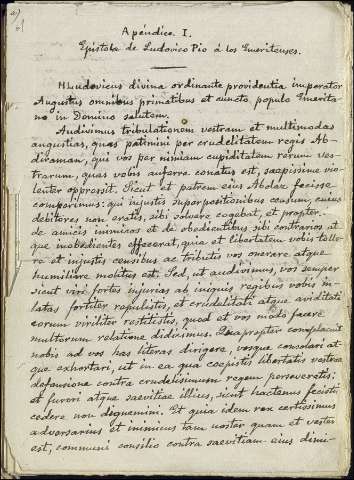 Apéndice I.
Epístola de Ludovico Pio á los Emeritenses.
Ludovicus divina ordinante providentia imperator
Augustus omnibus primatibus et cuncto populo Emerita
no in Domino salutem.
Audivimus tribulationem vestram et multimodas
angustias, quas patimini per crudelitatem regis Ab-
diraman, qui vos per nimiam cupiditatem rerum ves-
trarum, quas vobis auferre conatus est, saepissime vio
lenter oppressit. Sicut et patrem eius Abolaz fecisse
comperimus: qui injustis superpositionibus censum, cuius
debitores non eratis, sibi solvere cogebat, et propter
de amicis inimicos et de obedientibus sibi contrarios at
que inobedientes effecerat, quia et libertatem vobis tolle-
re et injustis censibus ac tributis vos onerare atque
humiliare molitus est. Sed, ut audivimus, vos semper
sicut viri fortes injurias ab iniquis regibus vobis in-
latas fortiter repulistis, et crudelitati atque aviditati
eorum viriliter restitistis, quod et vos modo facere
multorum relatione didicimus. Quapropter complacuit
nobis ad vos has literas dirigere, vosque consolari at-
que exhortari, ut in ea qua coepistis libertatis vestrae
defensione contra crudelissimum regem perseveretis,
et furori atque saevitiae illius, sicut hactenus fecistis
cedere non dignemini. Et quia idem rex certissimus
adversarius et inimicus tam noster quam et vester
est, communi consilio contra saevitiam eius dimi-